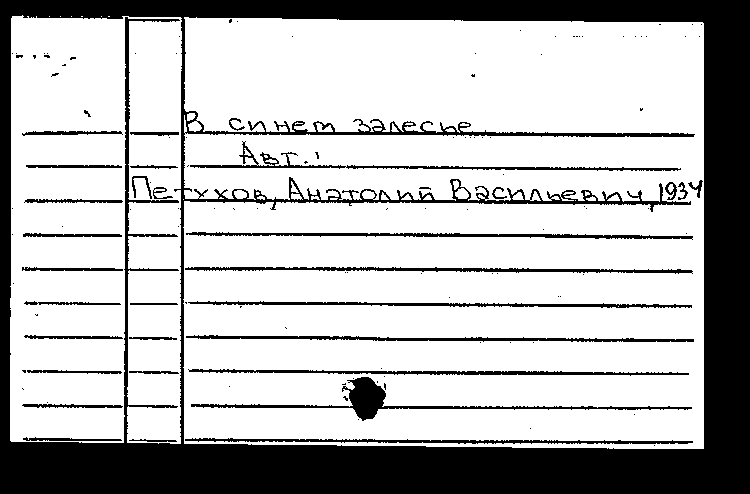 В синем залесье
Авт.:
Петухов, Анатолий Васильевич, 1934